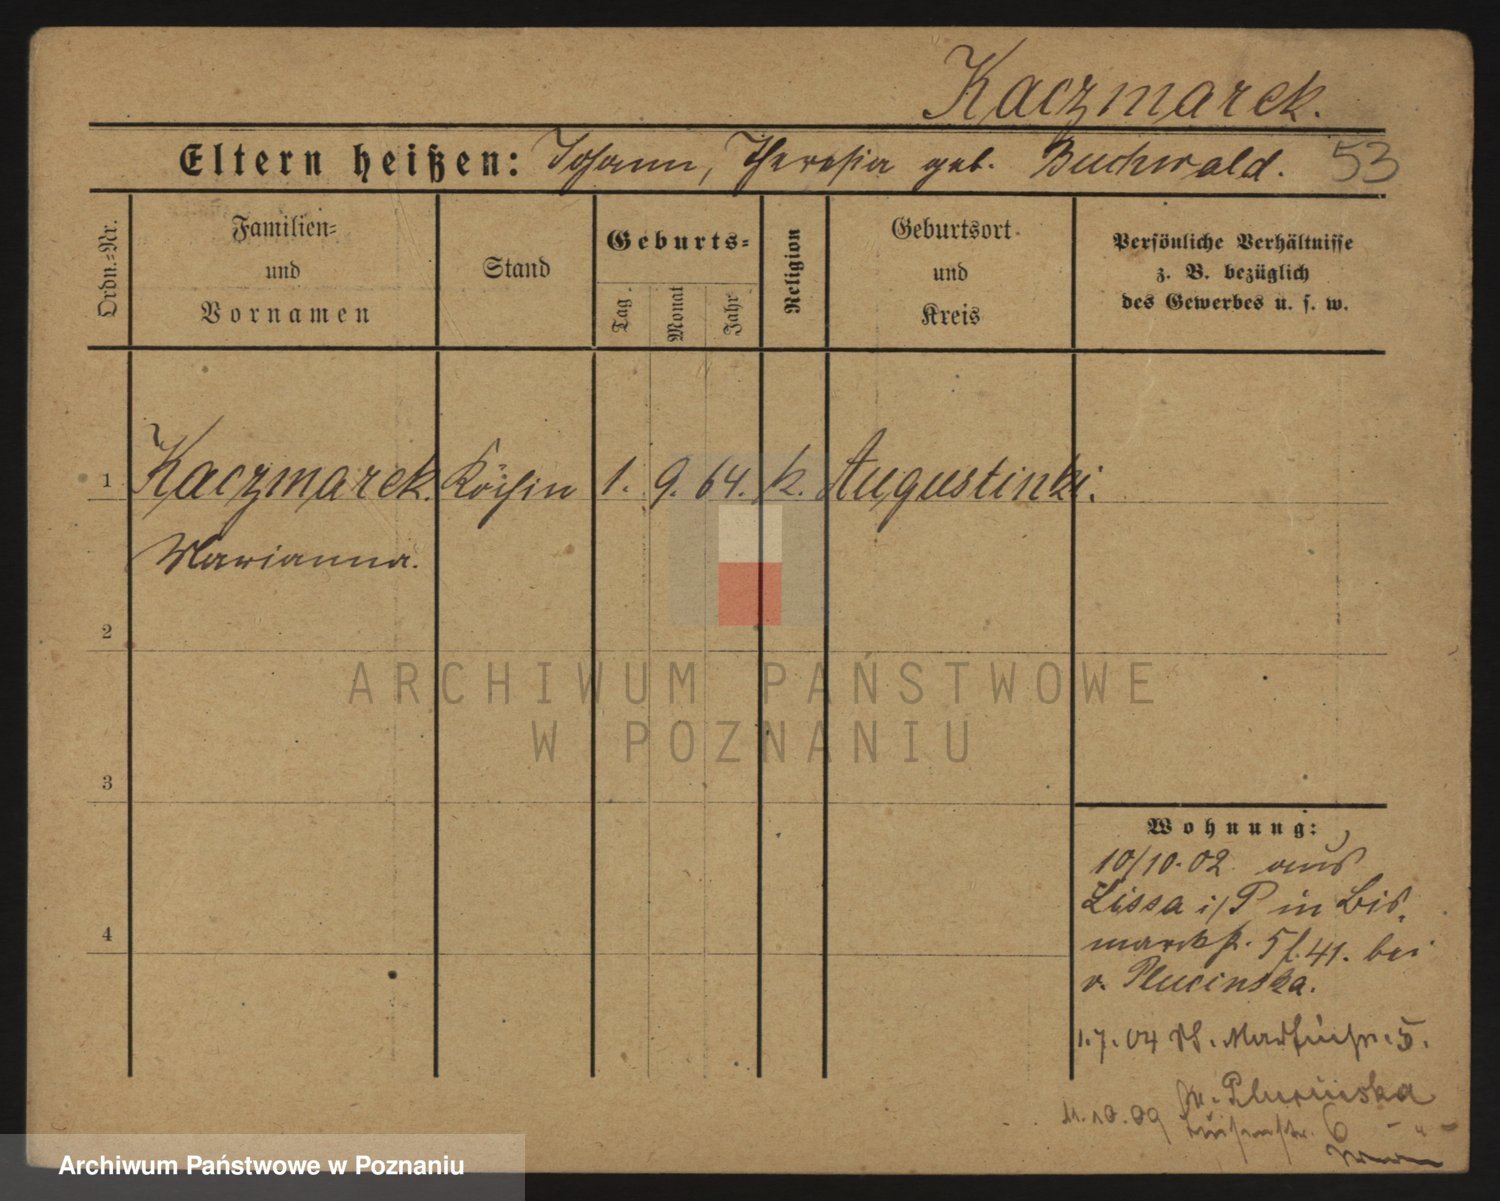 Kaczmarek.
Eltern heißen: Johann, Theresia geb. Buchwald. 53
Ordn.-Nr.
Familien-
und
Vornamen
Stand
Geburts-
Tag.
Monat
Jahr
Religion
Geburtsort
und
Kreis
Persönliche Verhältnisse
z. B. bezüglich
des Gewerbes u. s. w.
1 Kaczmarek. Köchin 1. 9. 64. k. Augustinki.
Marianna.
2
ARCHIWUM PAŃSTWOWE
W POZNANIU
3
4
Wohnung:
10/10.02 aus
Lissa i/P in Bis-
markstr. 5 41. bei
v. Plucinska.
1.7.04 5.
Plucinska
11.10.09 6 - " -
Archiwum Państwowe w Poznaniu